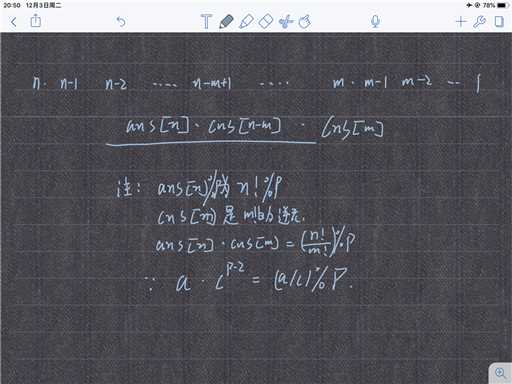 20:50 12月3日周二
78%
n · n-1 n-2 ···· n-m+1 ···· m · m-1 m-2 ··· 1
ans[n] · cns[n-m] · cns[m]
注: ans[n] 为 n! %P
cns[m] 是 m! 的 逆元.
ans[n] · cns[m] = (n!/m!)%P
∵ a · c^{P-2} = (a/c)%P.